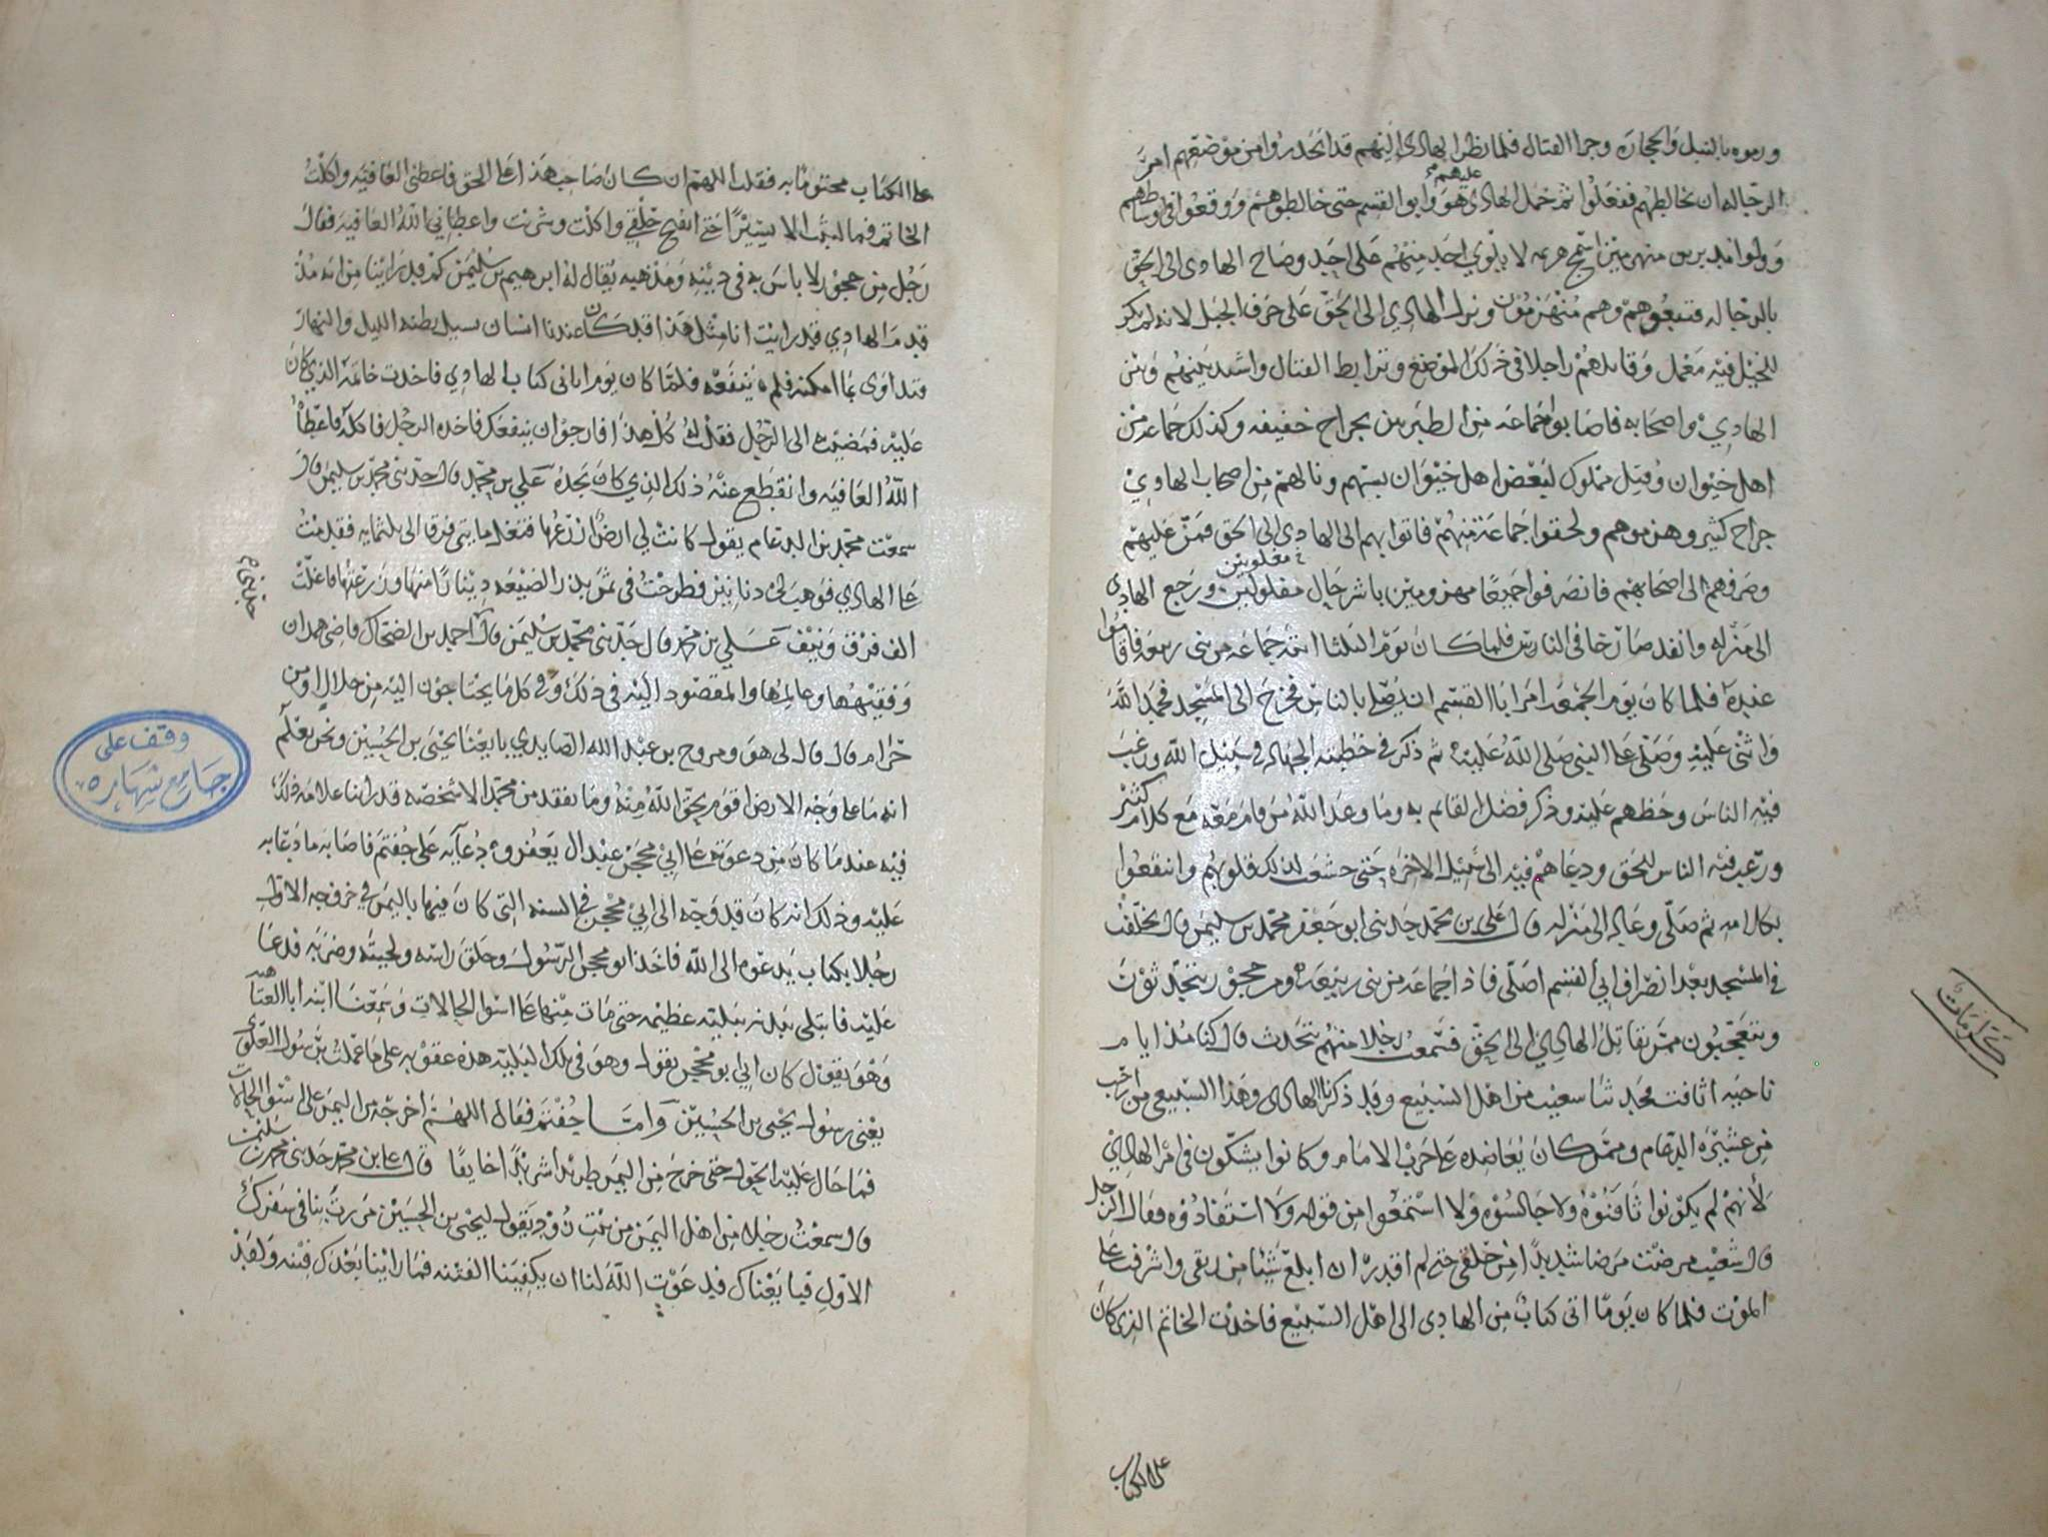 ورموه بالنبل والحجاره وجرا القتال فلما نظر الهادي اليهم قد انحدروا من موضعهم امر
الرجاله ان تخالطهم ففعلوا ثم حمل الهادي عليهم هو وابو القسم حتى خالطوهم ووقعوا في اوساطهم
وولوا مدبرين منهزمين اقبح هزيمه لا يلوي احد منهم على احد وصاح الهادي الى الحق
بالرجاله فتبعوهم وهم منهزمون ونزل الهادي الى الحق على حرف الجبل لانه لم يكن
للخيل فيه معمل وقاتلهم راجلا في ذلك الموضع وترابط القتال واشتد بينهم وبين
الهادي واصحابه فاصابوا جماعه من الطبريين بجراح خفيفه وكذلك جماعه من
اهل خيوان وقتل مملوك لبعض اهل خيوان بسهم ونالهم من اصحاب الهادي
جراح كثير وهزموهم ولحقوا جماعة منهم فاتوا بهم الى الهادي الى الحق فمن عليهم
وصرفهم الى اصحابهم فانصرفوا جميعا مهزومين باشر حال مفلولين مغلوبين ورجع الهادي
الى منزله وانفد صارخا في الناس فلما كان يوم الثلثا اتته جماعه من بني ربيعه فاقاموا
عنده فلما كان يوم الجمعه امر ابا القسم ان يصلي بالناس فخرج الى المسجد فحمد الله
واثنى عليه وصلى على النبي صلى الله عليه ثم ذكر في خطبته الجهاد في سبيل الله ورغب
فيه الناس وحظهم عليه وذكر فضل القائم به وما وعد الله من قام معه مع كلام كثير
ورغب فيه الناس للحق ودعاهم فيه الى سبيل الاخره حتى خشعت لذلك قلوبهم وانتفعوا
بكلامه ثم صلى وعاد الى منزله قال علي بن محمد حدثني ابو جعفر محمد بن سليمن قال تخلفت
في المسجد بعد انصراف ابي القسم اصلي فاذا جماعه من بني ربيعه ومن حجور يتحدثون
ويتعجبون ممن يقاتل الهادي الى الحق فسمعت رجلا منهم يتحدث قال كنا مذ ايام
ناحيه اثافت فحدثنا سعيب من اهل السبيع وقد ذكرنا الهادي وهذا السبيعي من ارحب
من عشيرة الدعام وممن كان يعانده على حرب الامام وكانوا يشكون في امر الهادي
لأنهم لم يكونوا ثافنوه ولا جالسوه ولا استمعوا من قوله ولا استفادوه فقال الرجل
قال شعيب مرضت مرضا شديدا من حلقي حتى لم اقدر ان ابلع شيئا من ريقي واشرفت على
الموت فلما كان يوما اتى كتاب من الهادي الى اهل السبيع فاخذت الخاتم الذي كان
على الكتاب
كرامات
على الكتاب مختوما به فقلت اللهم ان كان صاحب هذا على الحق فاعطني العافيه واكلت
الخاتم فما لبثت الا يسيرا حتى انفتح حلقي واكلت وشربت واعطاني الله العافيه فقال
رجل من حجور لا باس به في دينه ومذهبه يقال له ابرهيم بن سليمن كم قد راينا من ايه مذ
قدم الهادي قد رايت انا مثل هذا قد كان عندنا انسان سيل بطنه الليل والنهار
وتداوى بما امكنه فلم ينفعه فلما كان يوم اتاني كتاب الهادي فاخذت خاتمه الذي كان
عليه فمضيت الى الرجل فقلت له كل هذا فارجوا ان ينفعك فاخذه الرجل فاكله فاعطاه
الله العافيه وانقطع عنه ذلك الذي كان يجده علي بن محمد قال حدثني محمد بن سليمن قال
سمعت محمد بن الدعام يقول كانت لي ارض ازرعها فتغل مايتي فرق الى ثلثمايه فقدمت
على الهادي فوهب لي دنانير فطرحت في ثمن بذر الضيعه دينارا منها وزرعتها فاغلت
الف فرق ونيف علي بن محمد قال حدثني محمد بن سليمن قال احمد بن الضحاك قاضي همدان
وفقيهها وعالمها والمقصود اليه في ذلك وفي كل ما يحتاجون اليه من حلال او من
حرام قال قال لي هو ومروح بن عبد الله الصايدي بايعنا يحيى بن الحسين ونحن نعلم
انه ما على وجه الارض اقوم بحق الله منه وما نفقد من محمد الا شخصه قد راينا علامه ذلك
فيه عندما كان من دعوته على ابي محجن عبد ال يعفر و دعايه على جفتم فاصابه ما دعا به
عليه وذلك انه كان قد وجه الى ابي محجن في السنه التي كان فيها باليمن في خرجه الاول
رجلا بكتاب يدعوه الى الله فاخذ ابو محجن الرسول وحلق راسه ولحيته وضربه فدعا
عليه فابتلي ببدنه ببليه عظيمه حتى مات منها على اسوا الحالات وسمعنا ابنه ابا العتاهيه
وهو يقول كان ابي ابو محجن يقول وهو في تلك البليه هذه عقوبه على ما عملت برسول العلوي
يعني رسول يحيى بن الحسين واما جفتم فقال اللهم اخرجه من اليمن على اسوا الحالات
فما حال عليه الحول حتى خرج من اليمن طريدا شريدا خايفا قال علي بن محمد حدثني محمد بن سليمن
قال سمعت رجلا من اهل اليمن من بيت ذود يقول ليحيى بن الحسين مررت بنا في سفرك
الاول فبايعناك فدعوت الله لنا ان يكفينا الفتنه فما راينا بعدك فتنه ولقد
وقف على
جامع شهاره